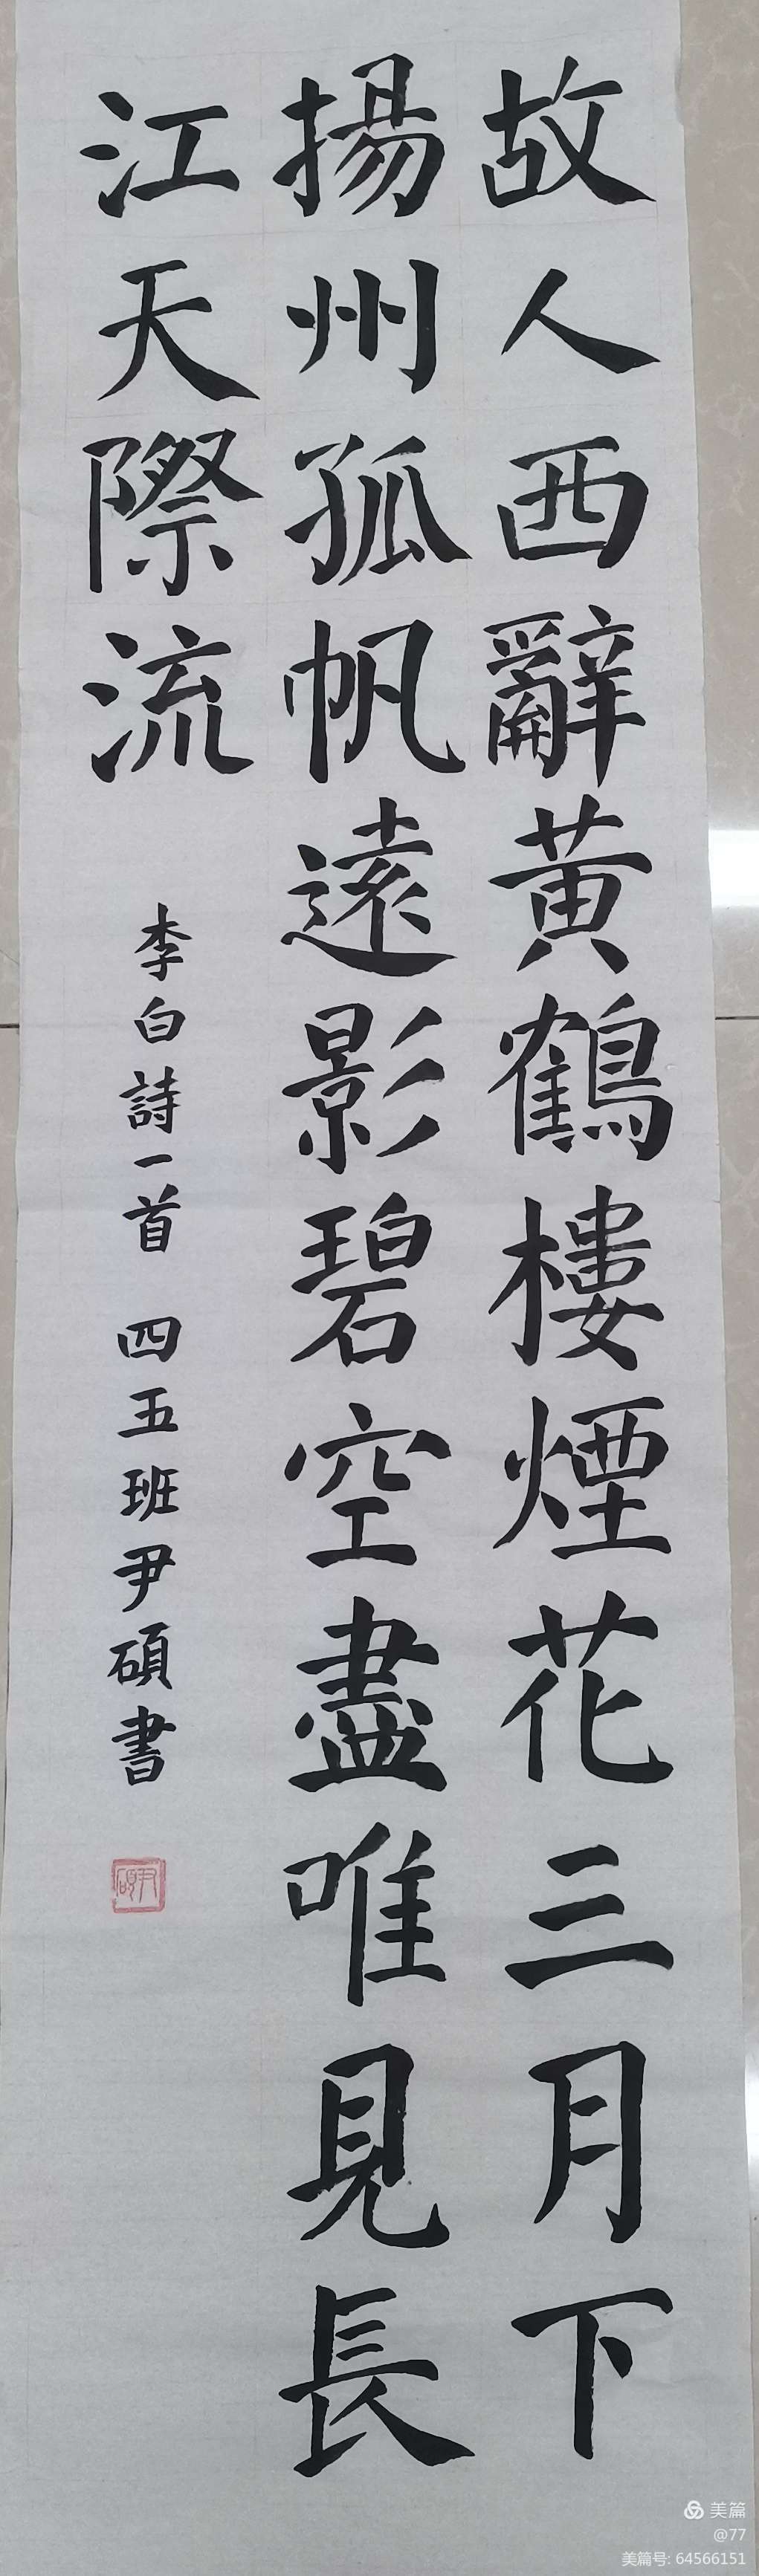 故人西辭黄鶴樓煙花三月下
揚州孤帆遠影碧空盡唯見長
江天際流
李白詩一首 四五班尹碩書
尹碩
美篇
@77
美篇号: 64566151